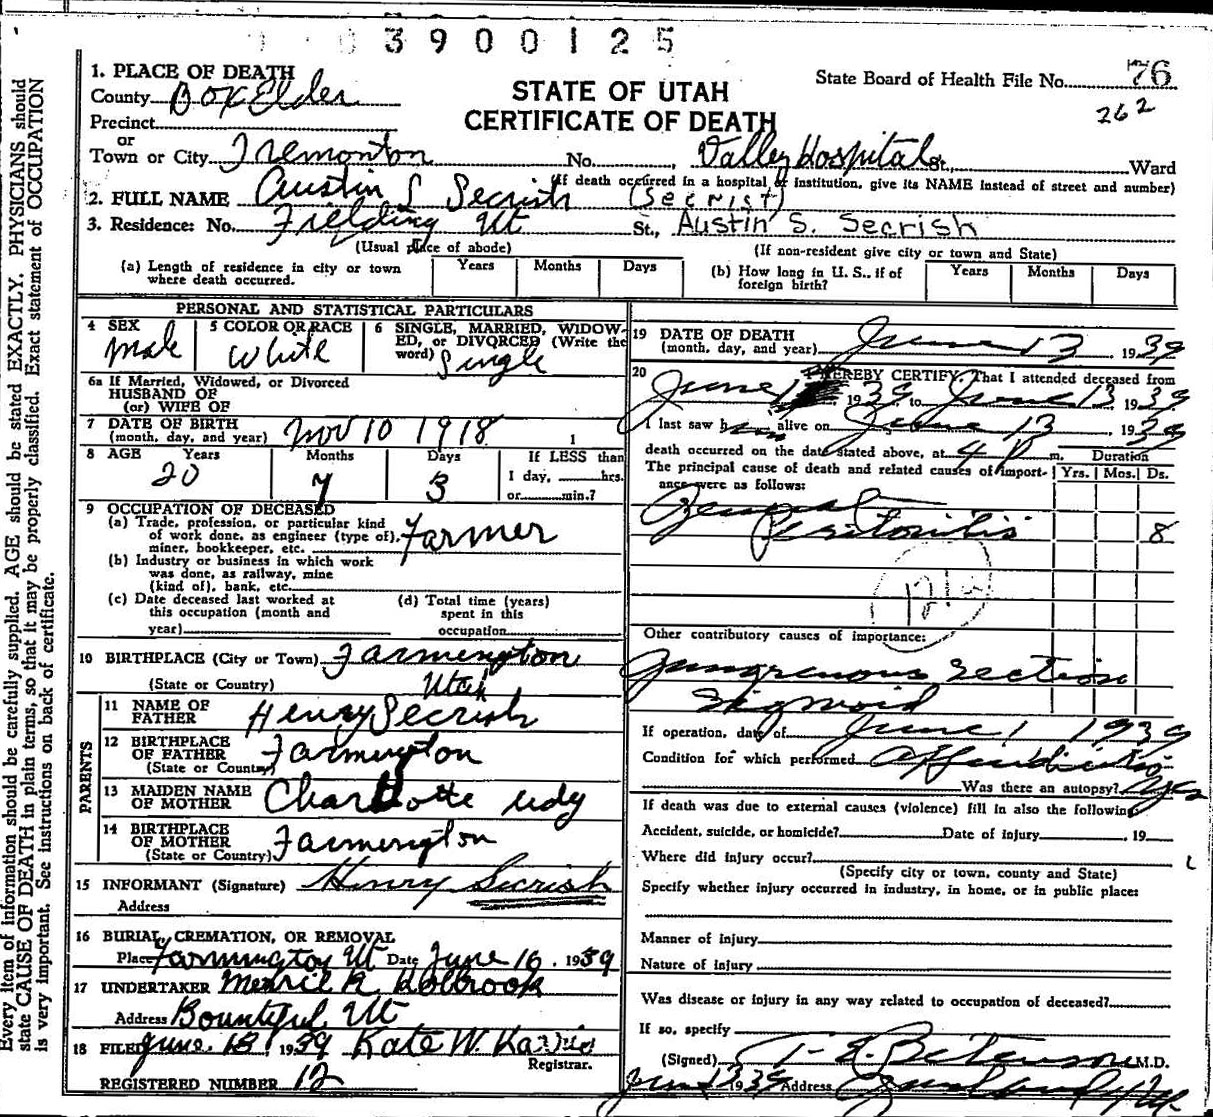 3900125
1. PLACE OF DEATH
County Box Elder
Precinct
or
Town or City Tremonton No. , Valley Hospital St., Ward
STATE OF UTAH
CERTIFICATE OF DEATH
State Board of Health File No. 76
262
(If death occurred in a hospital or institution, give its NAME instead of street and number)
2. FULL NAME Austin S Secrist (Secrist)
3. Residence: No. Fielding Ut St., Austin S. Secrish
(Usual place of abode) (If non-resident give city or town and State)
(a) Length of residence in city or town where death occurred. Years Months Days
(b) How long in U. S., if of foreign birth? Years Months Days
PERSONAL AND STATISTICAL PARTICULARS
4 SEX Male
5 COLOR OR RACE White
6 SINGLE, MARRIED, WIDOWED, or DIVORCED (Write the word) Single
6a If Married, Widowed, or Divorced
HUSBAND OF
(or) WIFE OF
7 DATE OF BIRTH
(month, day, and year) Nov 10 1918
8 AGE Years Months Days If LESS than
20 7 3 1 day, hrs.
or min.?
9 OCCUPATION OF DECEASED
(a) Trade, profession, or particular kind
of work done, as engineer (type of),
miner, bookkeeper, etc. Farmer
(b) Industry or business in which work
was done, as railway, mine
(kind of), bank, etc.
(c) Date deceased last worked at
this occupation (month and
year)
(d) Total time (years)
spent in this
occupation
10 BIRTHPLACE (City or Town) Farmington
(State or Country) Utah
PARENTS
11 NAME OF
FATHER Henry Secrish
12 BIRTHPLACE
OF FATHER Farmington
(State or Country)
13 MAIDEN NAME
OF MOTHER Charlotte Udy
14 BIRTHPLACE
OF MOTHER Farmington
(State or Country)
15 INFORMANT (Signature) Henry Secrish
Address
16 BURIAL, CREMATION, OR REMOVAL
Place Farmington Ut Date June 16, 1939
17 UNDERTAKER Merril R Holbrook
Address Bountiful, Ut
18 FILED June 13, 1939 Kate W.
Registrar.
REGISTERED NUMBER 12
19 DATE OF DEATH
(month, day, and year) June 13 1939
20 I HEREBY CERTIFY, That I attended deceased from
June 1 1939 to June 13 1939
I last saw him alive on June 13 1939
death occurred on the date stated above, at 4 P m. Duration
The principal cause of death and related causes of importance were as follows: Yrs. Mos. Ds.
General
Peritonitis 8
Other contributory causes of importance:
Gangrenous Section
Sigmoid
If operation, date of June 1 1939
Condition for which performed Appendicitis
Was there an autopsy? Yes
If death was due to external causes (violence) fill in also the following
Accident, suicide, or homicide? Date of injury , 19
Where did injury occur?
(Specify city or town, county and State)
Specify whether injury occurred in industry, in home, or in public place:
Manner of injury
Nature of injury
Was disease or injury in any way related to occupation of deceased?
If so, specify
(Signed) M.D.
June 13 1939 Address
Every item of information should be carefully supplied. AGE should be stated EXACTLY. PHYSICIANS should
state CAUSE OF DEATH in plain terms, so that it may be properly classified. Exact statement of OCCUPATION
is very important. See instructions on back of certificate.